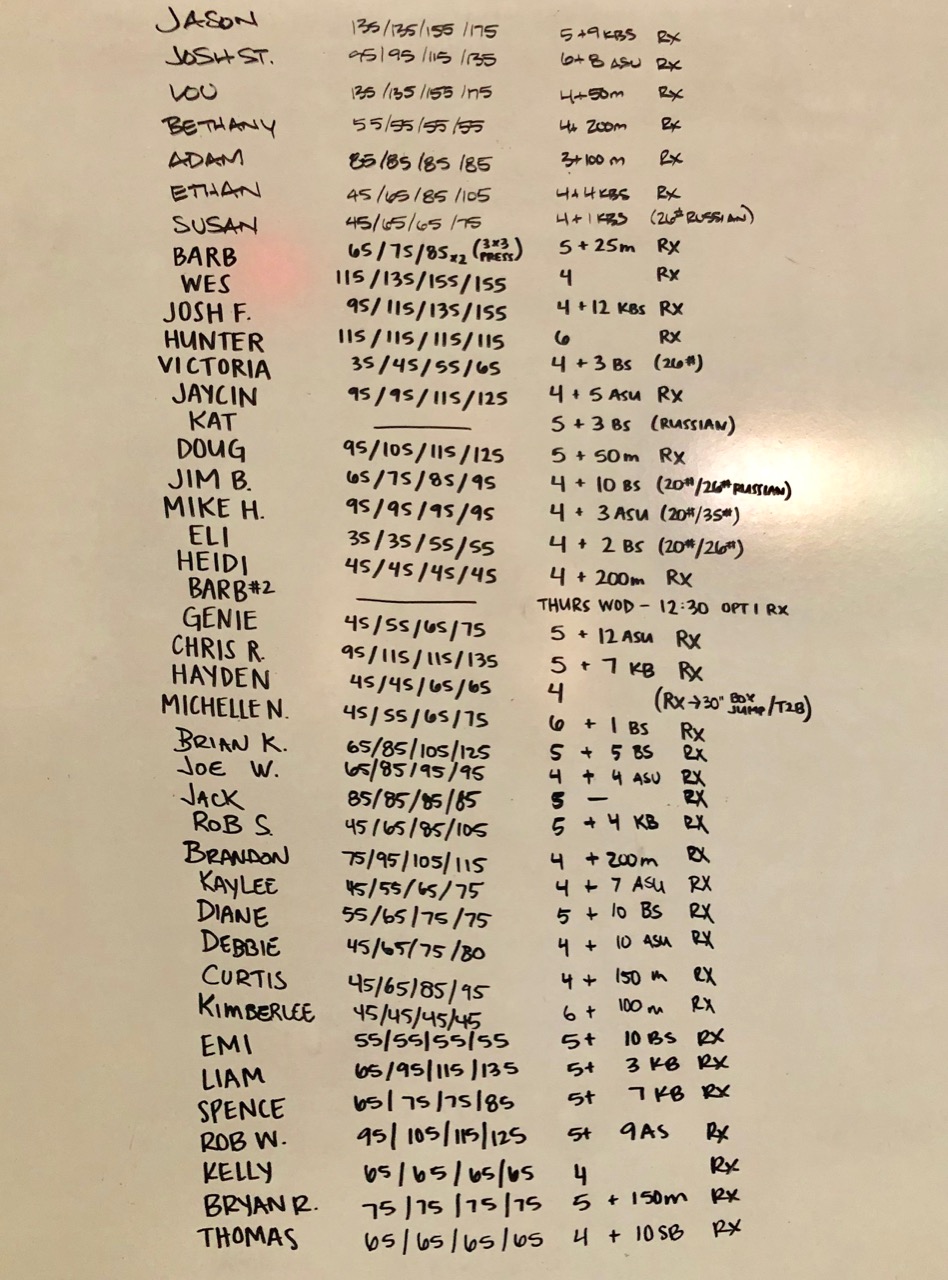 JASON 135/135/155/175 5+9 KBS RX
JOSH ST. 95/95/115/135 6+8 ASU RX
LOU 135/135/155/175 4+50m RX
BETHANY 55/55/55/55 4+ 200m RX
ADAM 85/85/85/85 3+100 m RX
ETHAN 45/65/85/105 4+4 KBS RX
SUSAN 45/65/65/75 4+1 KBS (26# RUSSIAN)
BARB 65/75/85x2 (3x3 PRESS.) 5+25m RX
WES 115/135/155/155 4 RX
JOSH F. 95/115/135/155 4+12 KBS RX
HUNTER 115/115/115/115 6 RX
VICTORIA 35/45/55/65 4 + 3 BS (26#)
JAYCIN 95/95/115/125 4 + 5 ASU RX
KAT — 5 + 3 BS (RUSSIAN)
DOUG 95/105/115/125 5 + 50m RX
JIM B. 65/75/85/95 4 + 10 BS (20#/26# RUSSIAN)
MIKE H. 95/95/95/95 4 + 3 ASU (20#/35#)
ELI 35/35/55/55 4 + 2 BS (20#/26#)
HEIDI 45/45/45/45 4 + 200m RX
BARB #2 — THURS WOD - 12:30 OPT 1 RX
GENIE 45/55/65/75 5 + 12 ASU RX
CHRIS R. 95/115/115/135 5 + 7 KB RX
HAYDEN 45/45/65/65 4 (RX→30" BOX JUMP/T2B)
MICHELLE N. 45/55/65/75 6 + 1 BS RX
BRIAN K. 65/85/105/125 5 + 5 BS RX
JOE W. 65/85/95/95 4 + 4 ASU RX
JACK 85/85/85/85 5 — RX
ROB S. 45/65/85/105 5 + 4 KB RX
BRANDON 75/95/105/115 4 + 200m RX
KAYLEE 45/55/65/75 4 + 7 ASU RX
DIANE 55/65/75/75 5 + 10 BS RX
DEBBIE 45/65/75/80 4 + 10 ASU RX
CURTIS 45/65/85/95 4 + 150 m RX
KIMBERLEE 45/45/45/45 6 + 100 m RX
EMI 55/55/55/55 5+ 10 BS RX
LIAM 65/95/115/135 5+ 3 KB RX
SPENCE 65/75/75/85 5+ 7 KB RX
ROB W. 95/105/115/125 5+ 9 AS RX
KELLY 65/65/65/65 4 RX
BRYAN R. 75/75/75/75 5 + 150m RX
THOMAS 65/65/65/65 4 + 10 SB RX